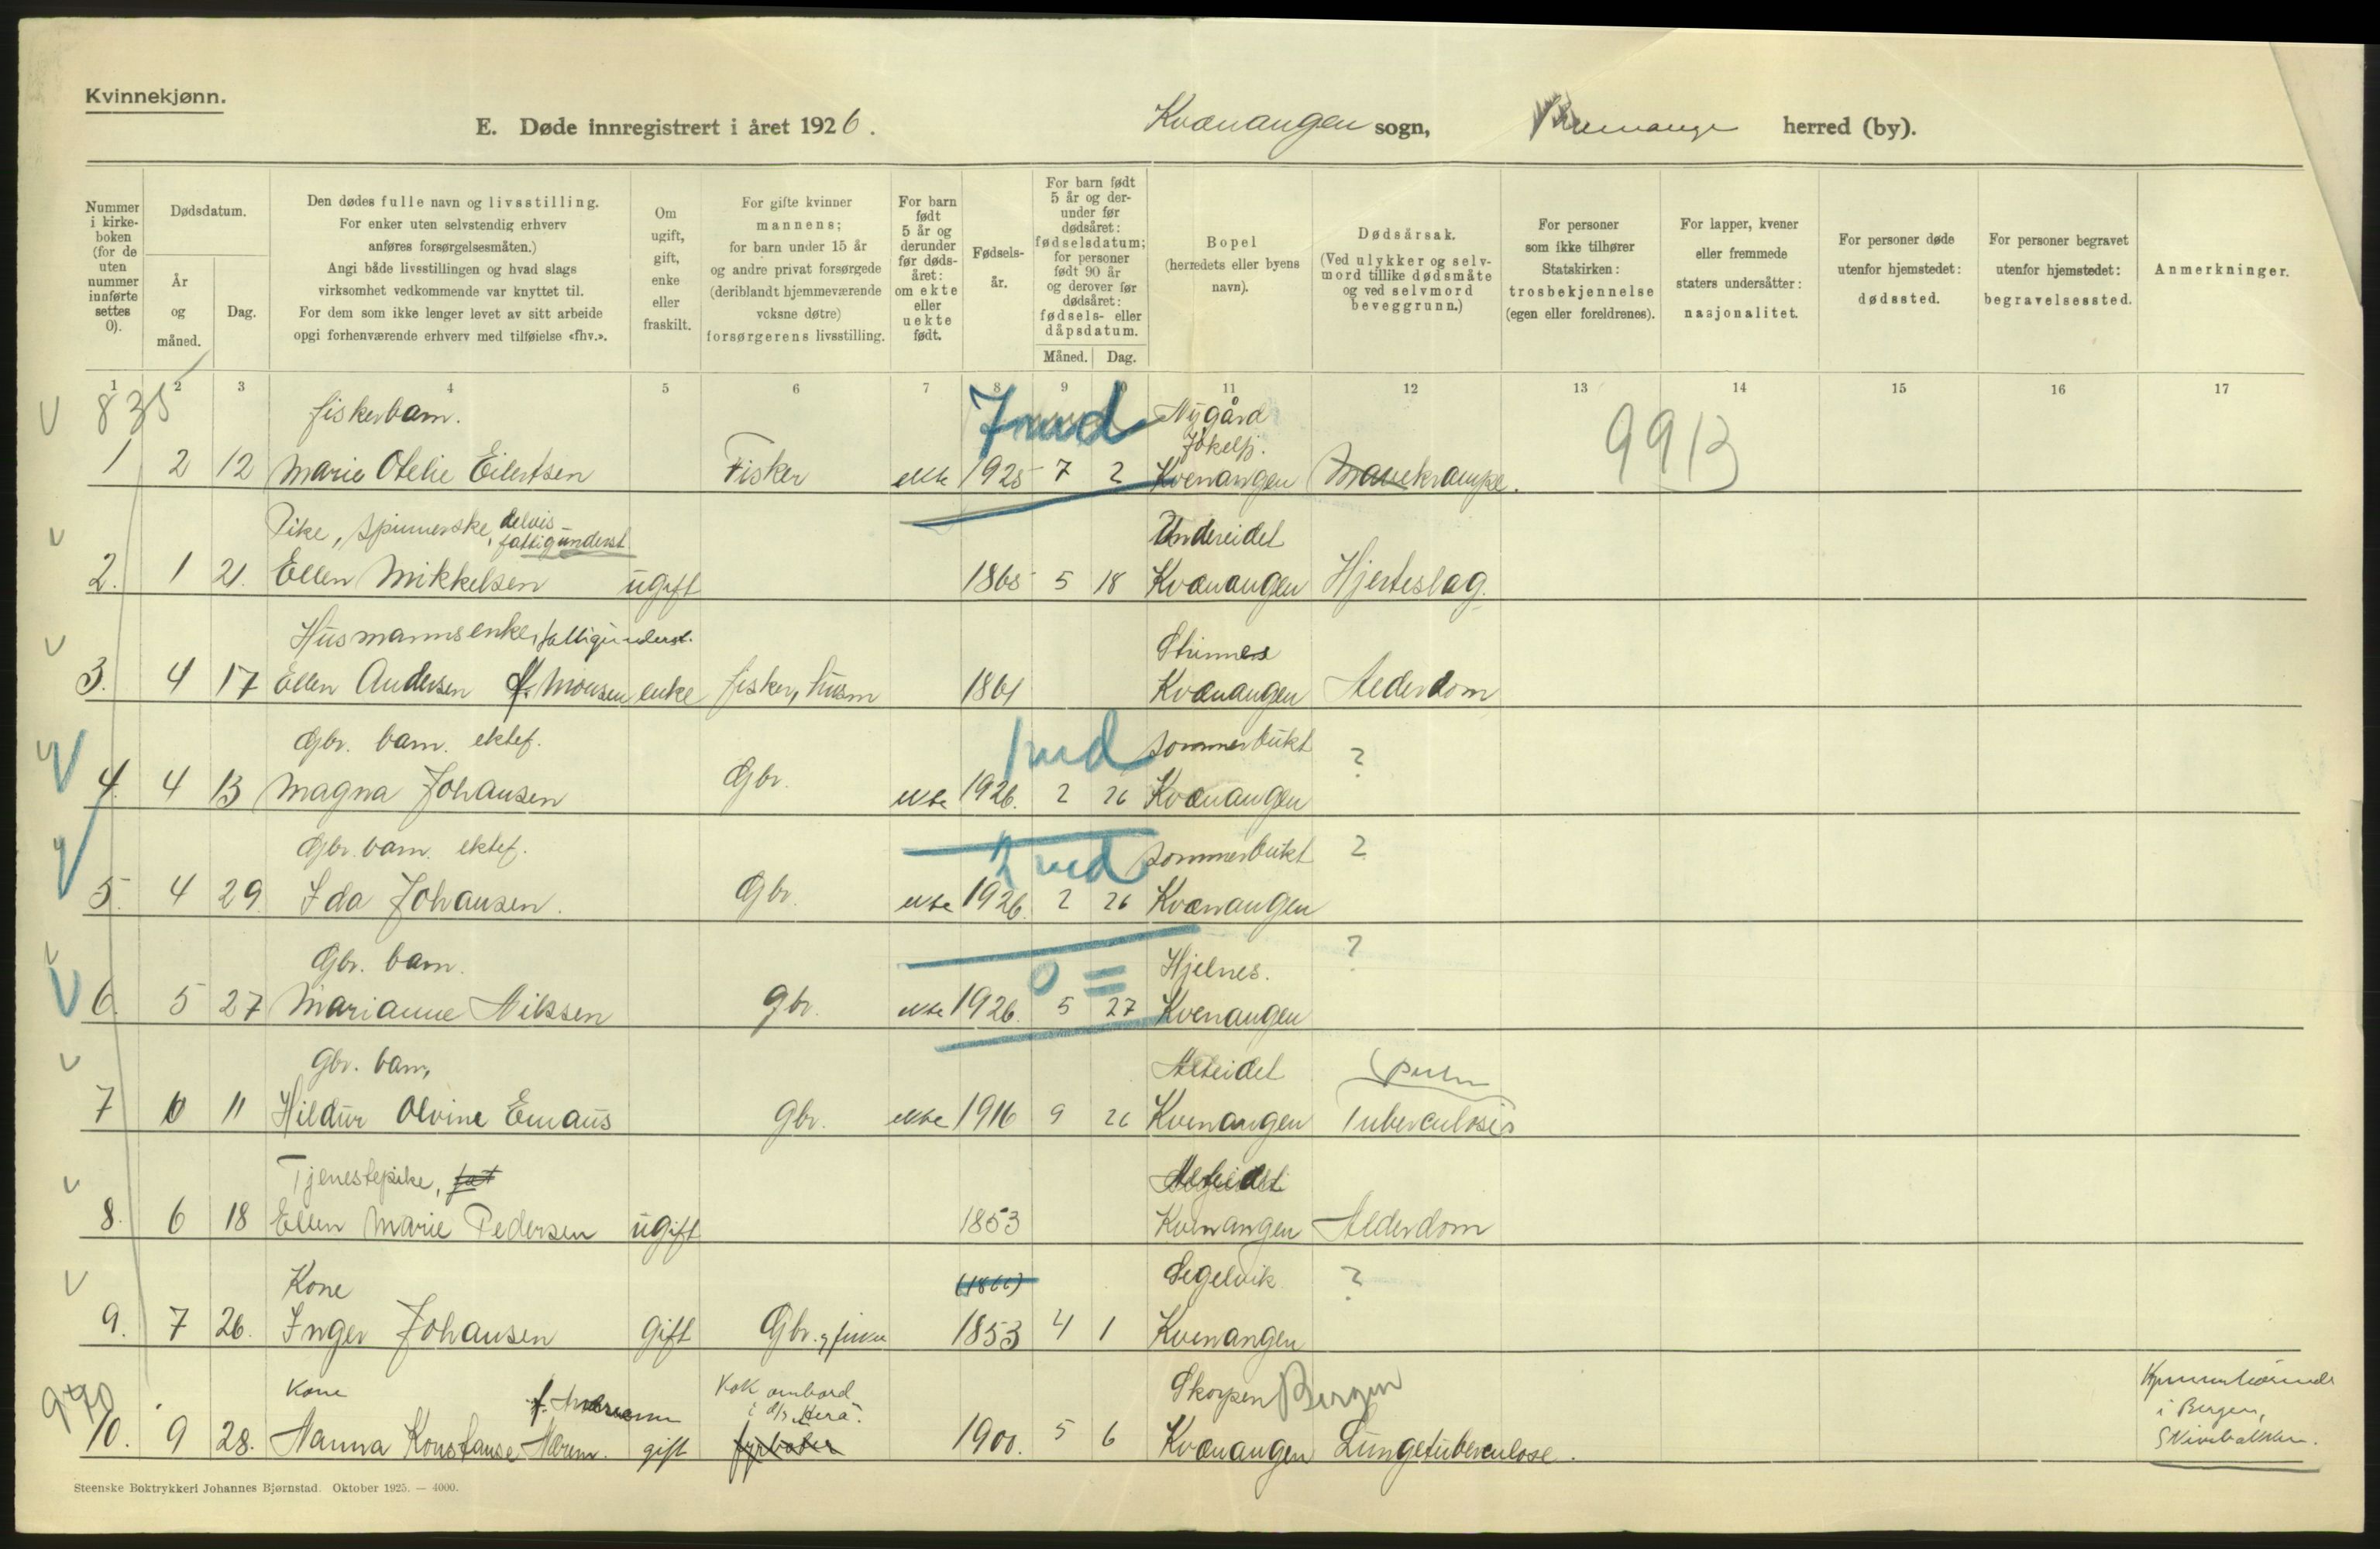 Kvinnekjønn.
E. Døde innregistrert i året 1926. Kvænangen sogn, herred (by).
Nummer i kirkeboken (for de uten nummer innførte settes 0).
Dødsdatum.
År og måned.
Dag.
Den dødes fulle navn og livsstilling.
For enker uten selvstendig erhverv
anføres forsørgelsesmåten.)
Angi både livsstillingen og hvad slags
virksomhet vedkommende var knyttet til.
For dem som ikke lenger levet av sitt arbeide
opgi forhenværende erhverv med tilføielse «fhv.».
Om ugift, gift, enke eller fraskilt.
For gifte kvinner
mannens;
for barn under 15 år
og andre privat forsørgede
(deriblandt hjemmeværende
voksne døtre)
forsørgerens livsstilling.
For barn født 5 år og derunder før dødsåret: om ekte eller uekte født.
Fødselsår.
For barn født 5 år og derunder før dødsåret: fødselsdatum; for personer født 90 år og derover før dødsåret: fødsels- eller dåpsdatum.
Måned. Dag.
Bopel
(herredets eller byens
navn).
Dødsårsak.
(Ved ulykker og selvmord tillike dødsmåte og ved selvmord beveggrunn.)
For personer
som ikke tilhører
Statskirken:
trosbekjennelse
(egen eller foreldrenes).
For lapper, kvener
eller fremmede
staters undersåtter:
nasjonalitet.
For personer døde
utenfor hjemstedet:
dødssted.
For personer begravet
utenfor hjemstedet:
begravelsessted.
Anmerkninger.
1 2 3 4 5 6 7 8 9 10 11 12 13 14 15 16 17
835 fiskerbarn. 7 md Nygård
Jøkelfj. 9913
1 2 12 Marie Otelie Eilertsen Fisker ekte 1925 7 2 Kvenangen Mavekrampe.
Pike, spinnerske, delvis fattigunderst Undereidet
2. 1 21. Ellen Mikkelsen ugift 1865 5 18 Kvænangen Hjerteslag.
Husmannsenke, fattigunderst.
3. 4 17 Ellen Andersen f. Monsen enke fisker, husm 1861 Kvænangen Alderdom
Gbr. barn. ektef. 1 md Sommerbukt ?
4. 4 13 Magna Johansen Gbr. ekte 1926. 2 26 Kvænangen
Gbr. barn. ektef. 2 md Sommerbukt ?
5. 4 29. Ida Johansen. Gbr. ekte 1926. 2 26 Kvænangen
Gbr. barn. 0 = Hjelnes. ?
6. 5 27 Marianne Nilssen Gbr. ekte 1926. 5 27 Kvenangen
Gbr. barn, Alteidet
7 6 11 Hildur Olvine Emaus Gbr. ekte 1916 9 26 Kvenangen Tuberculosis
Tjenestepike, fat Alteidet
8. 6 18 Ellen Marie Pedersen ugift 1853 Kvenangen Alderdom
Kone Segelvik ?
9. 7 26. Inger Johansen gift Gbr. 1853 4 1 Kvenangen
970 Kone Kok ombord Skorpen Bergen
i d/s "Hera". i Bergen,
10. 9 28. Nanna Konstanse gift fyrbøter 1900. 5 6 Kvænangen Lungetuberculose.
Steenske Boktrykkeri Johannes Bjørnstad. Oktober 1925. — 4000.